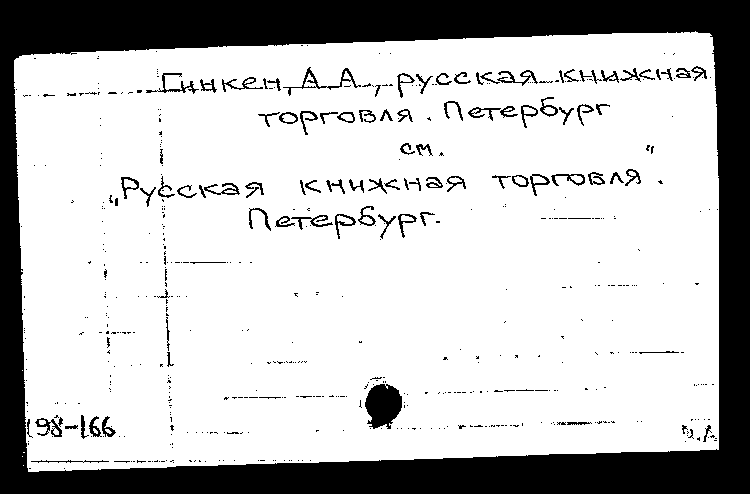 Гинкен, А. А., русская книжная
торговля. Петербург
см.
„Русская книжная торговля".
Петербург.
98-166